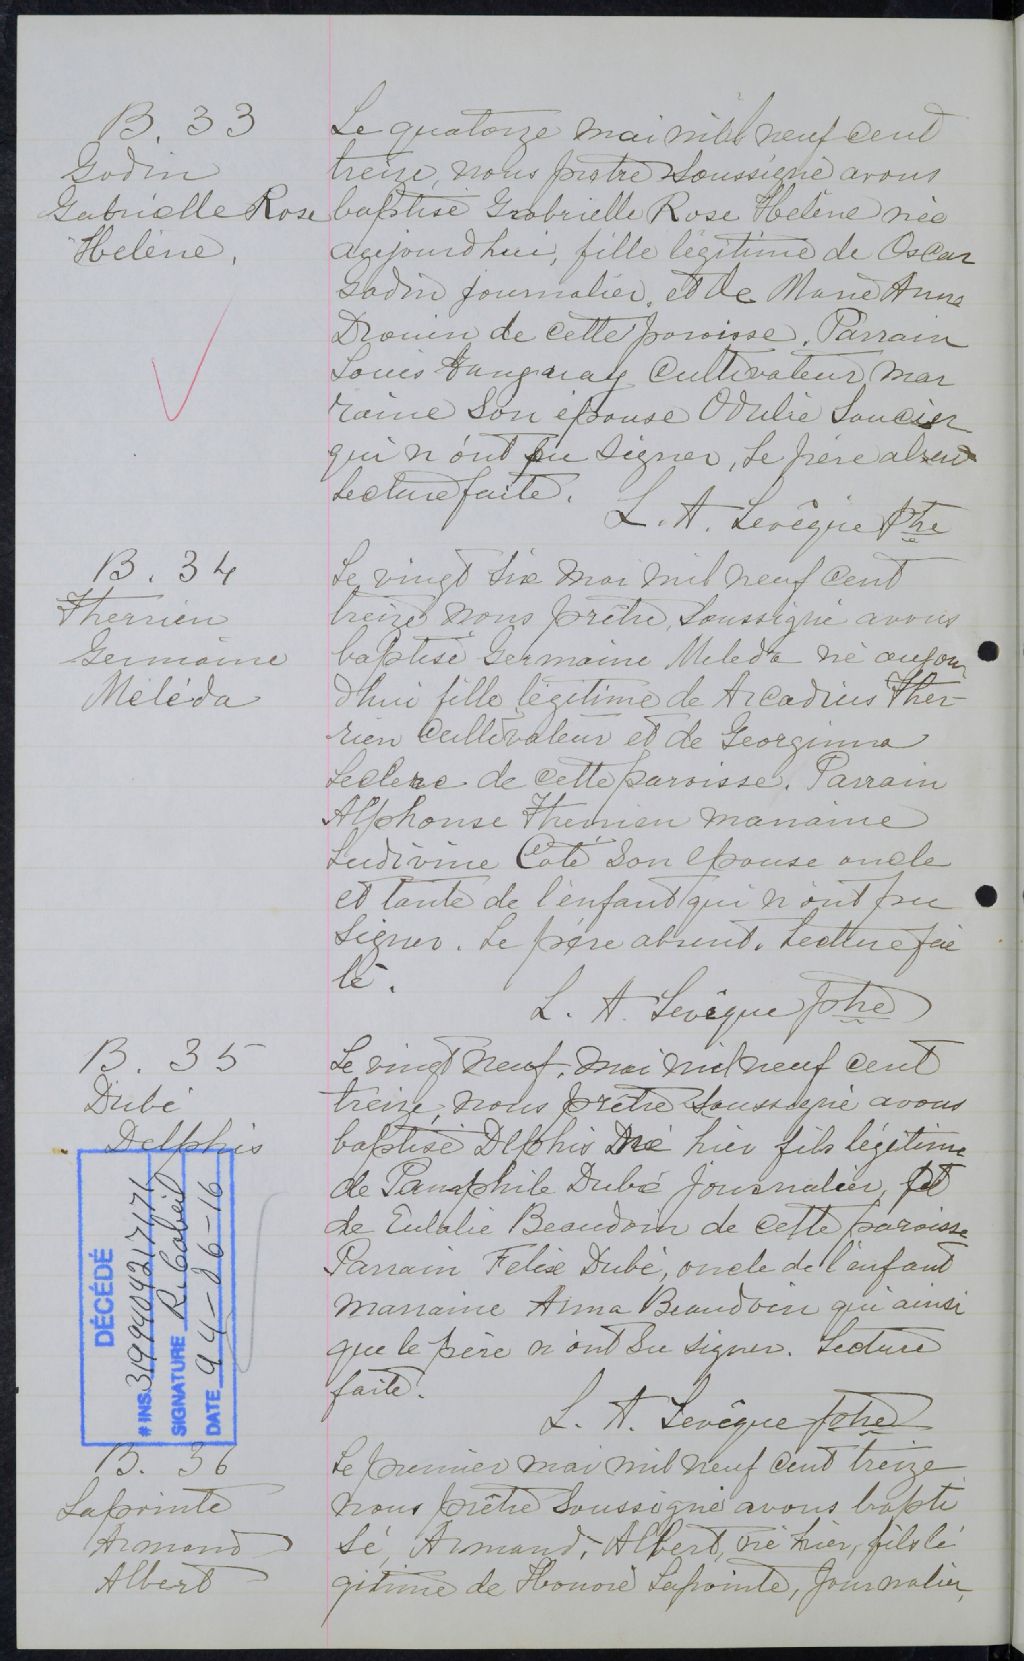 B. 33
Godin
Gabrielle Rose
Helène.
Le quatorze mai mil neuf cent
treize, nous prêtre soussigné avons
baptisé Grabrielle Rose Helène née
aujourdhui, fille légitime de Oscar
Godin journalier, et de Marie Anna
Drouin de cette paroisse. Parrain
Louis Tanguay Cultivateur, mar
raine son épouse Odulie Soucier
qui n'ont pu signer, Le père absent
Lecture faite.
L. A. Levêque Ptre
B. 34
Therrien
Germaine
Méléda
Le vingt six mai mil neuf cent
treize nous prêtre, soussigné avons
baptisé Germaine Meleda né aujour
dhui fille légitime de Arcadius Ther-
rien Cultivateur et de Georginna
Leclerc de cette paroisse. Parrain
Alphonse Therrien marraine
Ludivine Coté son epouse oncle
et tante de l'enfant qui n'ont pu
signer. Le père absent. Lecture fai
te.
L. A. Levêque ptre
B. 35
Dubé
Delphis
Le vingt neuf, mai mil neuf cent
treize, nous prêtre soussigné avons
baptisé Dlphis né hier fils légitime
de Pamphile Dubé Journalier, et
de Eulalie Beaudoin de cette paroisse
Parrain Felix Dubé, oncle de l'enfant
marraine Anna Beaudoin qui ainsi
que le père n'ont su signer. Lecture
faite.
L. A. Levêque ptre
DÉCÉDÉ
# INS. 3199404217171
SIGNATURE R. Cabeil
DATE 94-06-16
B. 36
Lapointe
Armand
Albert
Le premier mai mil neuf cent treize
nous prêtre soussigné avons bapti
sé, Armand, Albert, né hier, fils lé
gitime de Honoré Lapointe, Journalier,